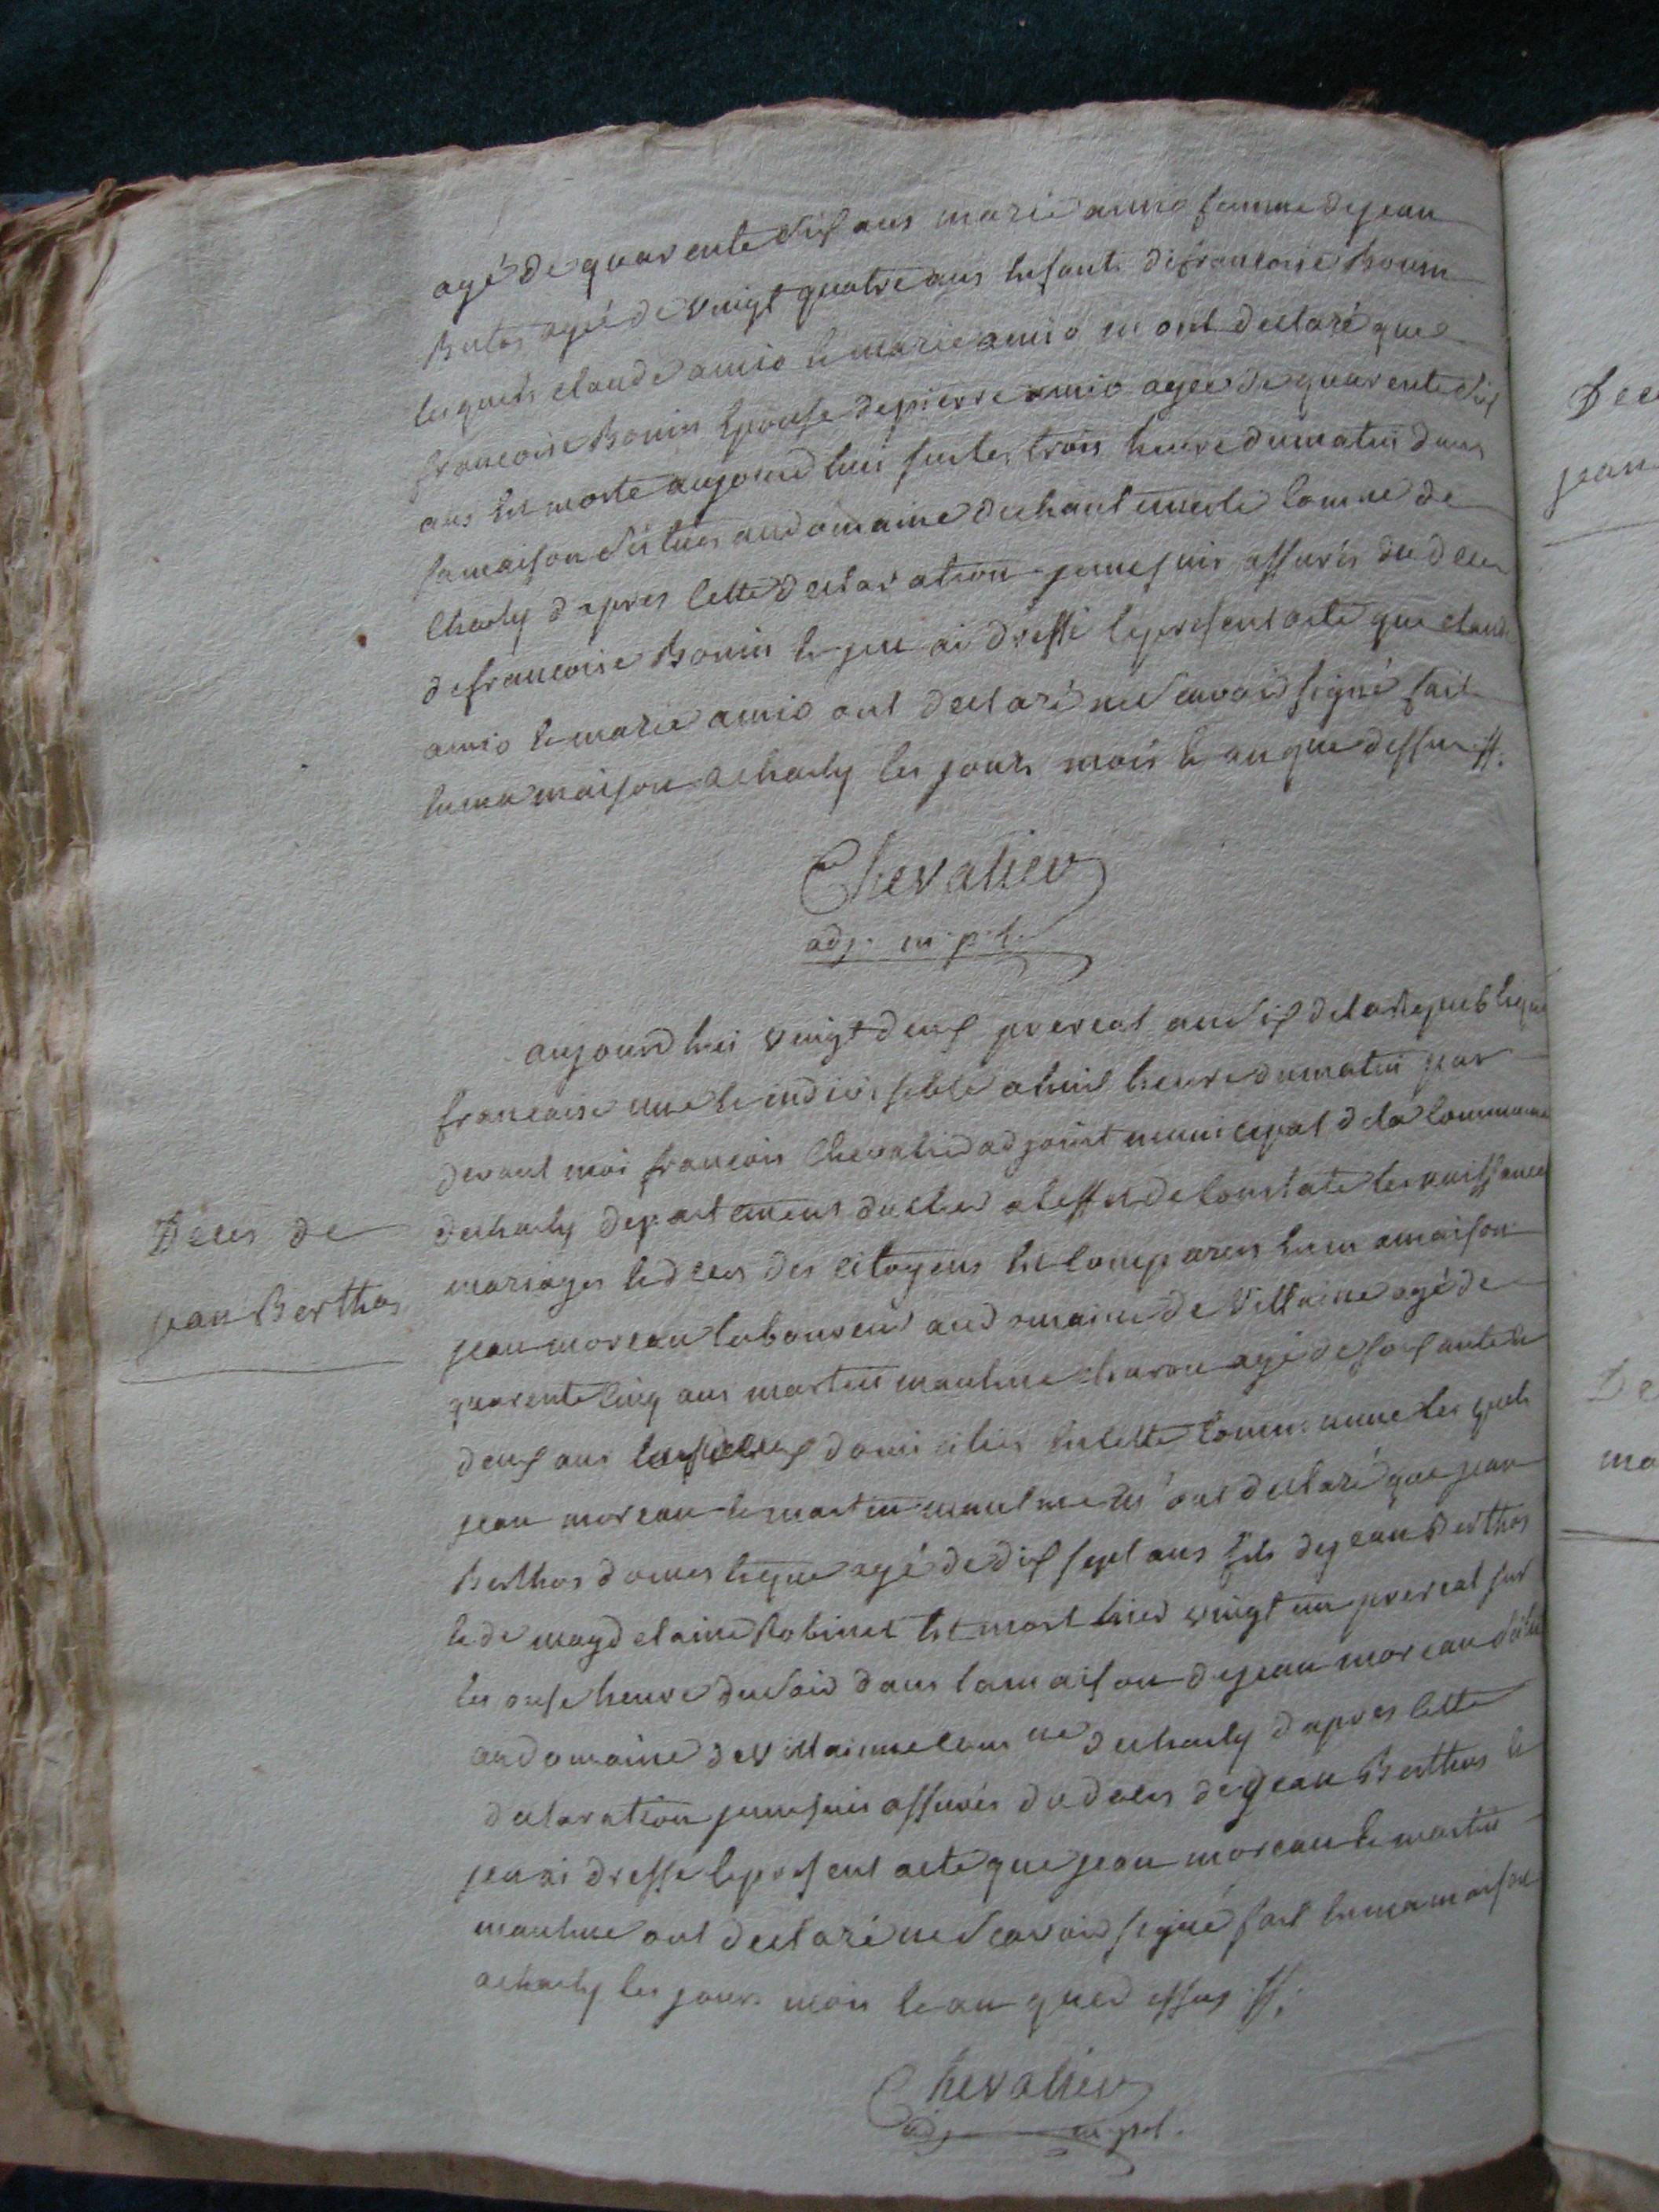 agé de quarente six ans marie amio femme de jean
agée de vingt quatre ans enfants de francoise Bonin
lesquels claude amio et marie amio m ont declaré que
francoise Bonin Epouse de pierre amio agee de quarente six
ans est morte aujourd hui sur les trois heure du matin dans
sa maison située au domaine de chantemerle comne de
Charly d apres cette declaration je me suis assurés du deces
de francoise Bonin et j en ai dressé le present acte que claude
amio et marie amio ont declaré ne scavoir signé fait
en ma maison a charly les jours mois et an que dessus ff.
Chevalier
adj. m.p.l.
Deces de
jean Berthos
aujourd hui vingt deux prereal an six de la Republique
francaise une et indivisible a huit heure du matin par
devant moi francois Chevalier adjoint municipal de la commune
de charly departement du cher a l effet de constaté les naissances
mariages et deces des citoyens est comparus en ma maison
jean moreau laboureur au domaine de Villaine agé de
quarente cinq ans martin maulme charon agé de soixante et
deux ans domiciliés en cette commune les quels
jean moreau et martin maulme m'ont declaré que jean
Berthos domestique agé de dix sept ans fils de jean Berthos
et de magdelaine Robinet est mort hier vingt un prereal sur
les onse heure du soir dans la maison de jean moreau située
au domaine de villainne comne de charly d apres cette
declaration je me suis assurés du deces de jean Berthos et
j en ai dressé le present acte que jean moreau et martin
maulme ont declaré ne scavoir signé fait en ma maison
a charly les jours mois et an que dessus ff.
Chevalier
adj m.pal.
Dec
jean
De
ma